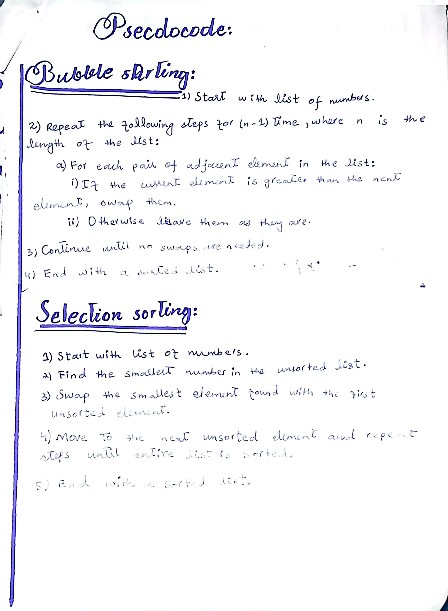 Psecdocode:
Bubble sorting:
1) Start with list of numbers.
2) Repeat the following steps for (n-1) time, where n is the
length of the list:
a) For each pair of adjacent element in the list:
i) If the current element is greater than the next
element, swap them.
ii) Otherwise leave them as they are.
3) Continue until no swaps are needed.
4) End with a sorted list.
Selection sorting:
1) Start with list of numbers.
2) Find the smallest number in the unsorted list.
3) Swap the smallest element found with the first
unsorted element.
4) Move to the next unsorted element and repeat
steps until entire list is sorted.
5) End with a sorted list.